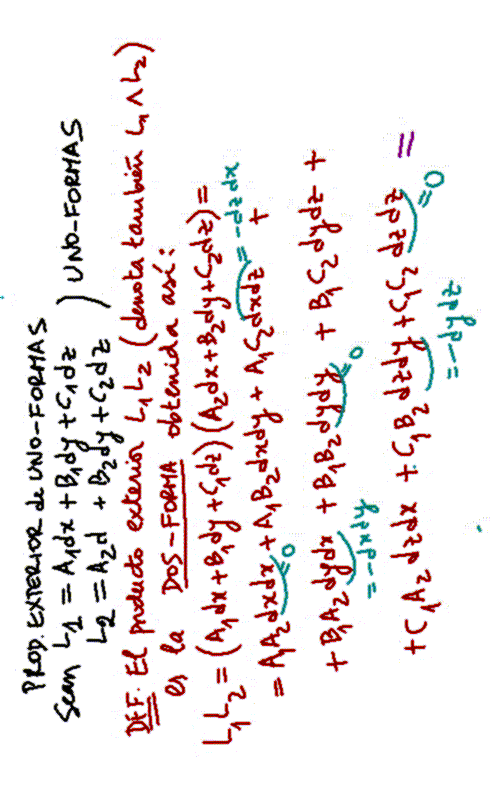 PROD. EXTERIOR de UNO-FORMAS
Sean L₁ = A₁dx + B₁dy + C₁dz ) UNO-FORMAS
L₂ = A₂d + B₂dy + C₂dz
DEF. El producto exterior L₁L₂ (denota también L₁ ∧ L₂)
es la DOS-FORMA obtenida así:
L₁L₂ = (A₁dx + B₁dy + C₁dz)(A₂dx + B₂dy + C₂dz) =
= A₁A₂dxdx + A₁B₂dxdy + A₁C₂dxdz +
=0 = -dzdx
+ B₁A₂dydx + B₁B₂dydy + B₁C₂dydz +
= -dxdy =0
+ C₁A₂dzdx + C₁B₂dzdy + C₁C₂dzdz =
= -dydz =0